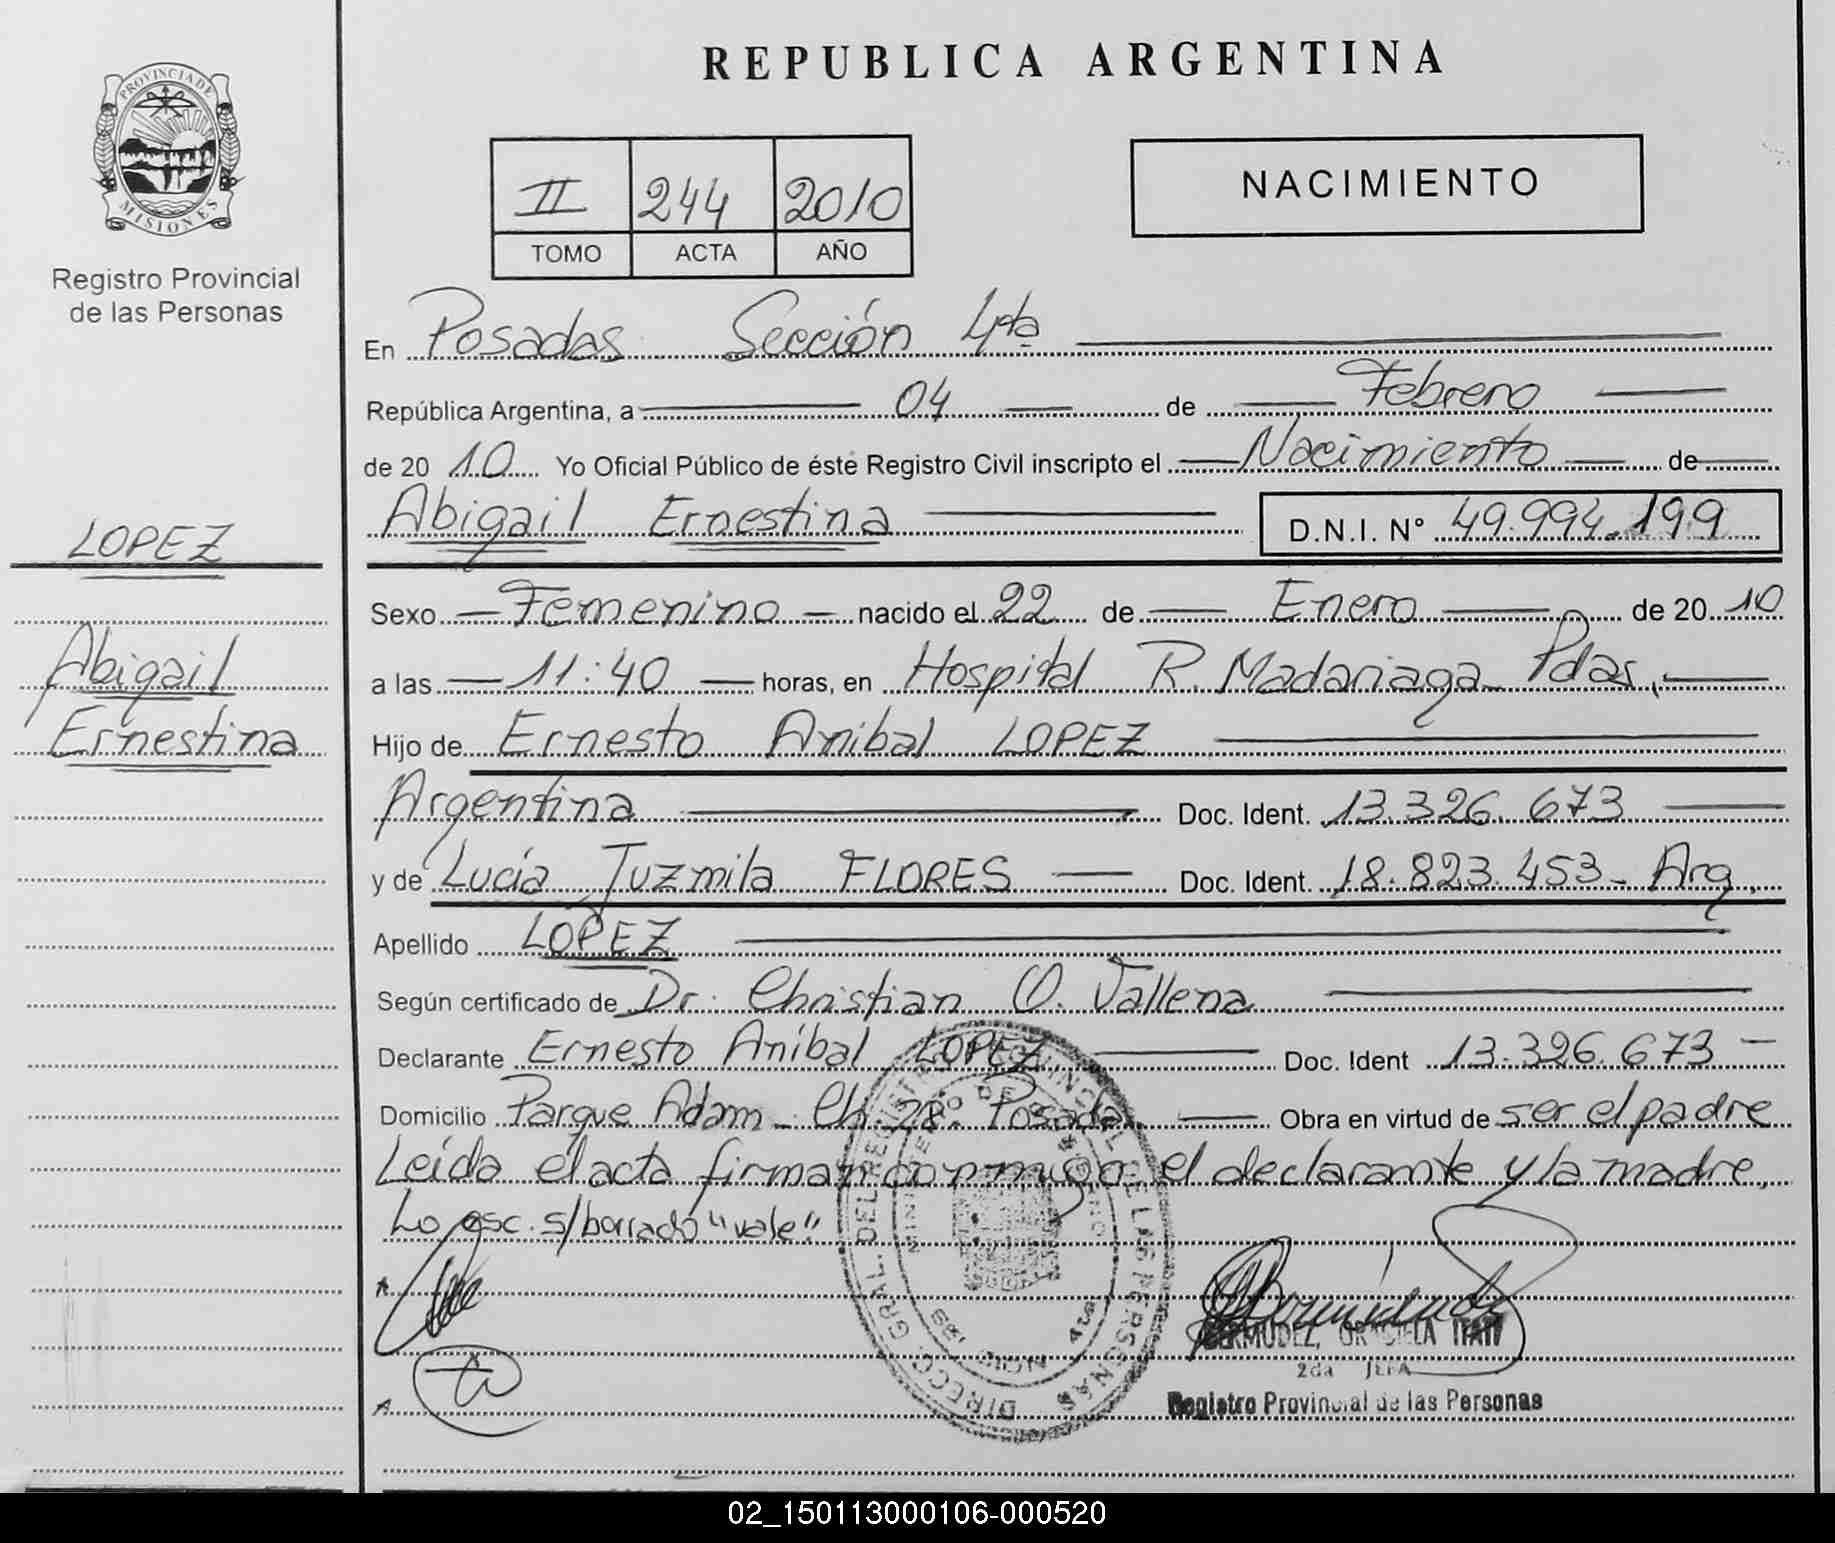 PROVINCIA DE
MISIONES
Registro Provincial
de las Personas
LOPEZ
Abigail
Ernestina
REPUBLICA ARGENTINA
II 244 2010
TOMO ACTA AÑO
NACIMIENTO
En Posadas Sección 4ta
República Argentina, a 04 de Febrero
de 20 10 Yo Oficial Público de éste Registro Civil inscripto el Nacimiento de
Abigail Ernestina D.N.I. N° 49.994.199
Sexo Femenino nacido el 22 de Enero de 20 10
a las 11:40 horas, en Hospital R. Madariaga Pdas.
Hijo de Ernesto Anibal LOPEZ
Argentina Doc. Ident. 13.326.673
y de Lucía Juzmila FLORES Doc. Ident. 18.823.453- Arg.
Apellido LOPEZ
Según certificado de Dr. Christian O. Vallena
Declarante Ernesto Aníbal LOPEZ Doc. Ident 13.326.673
Domicilio Parque Adam - Ch. 28. Posadas Obra en virtud de ser el padre
Leída el acta firman conmigo el declarante y la madre.
Lo esc. s/borrado "vale"
DIRECC. GRAL. DEL REGISTRO PROVINCIAL DE LAS PERSONAS
BERMUDEZ, GRACIELA
2da JEFA
Registro Provincial de las Personas
02_150113000106-000520